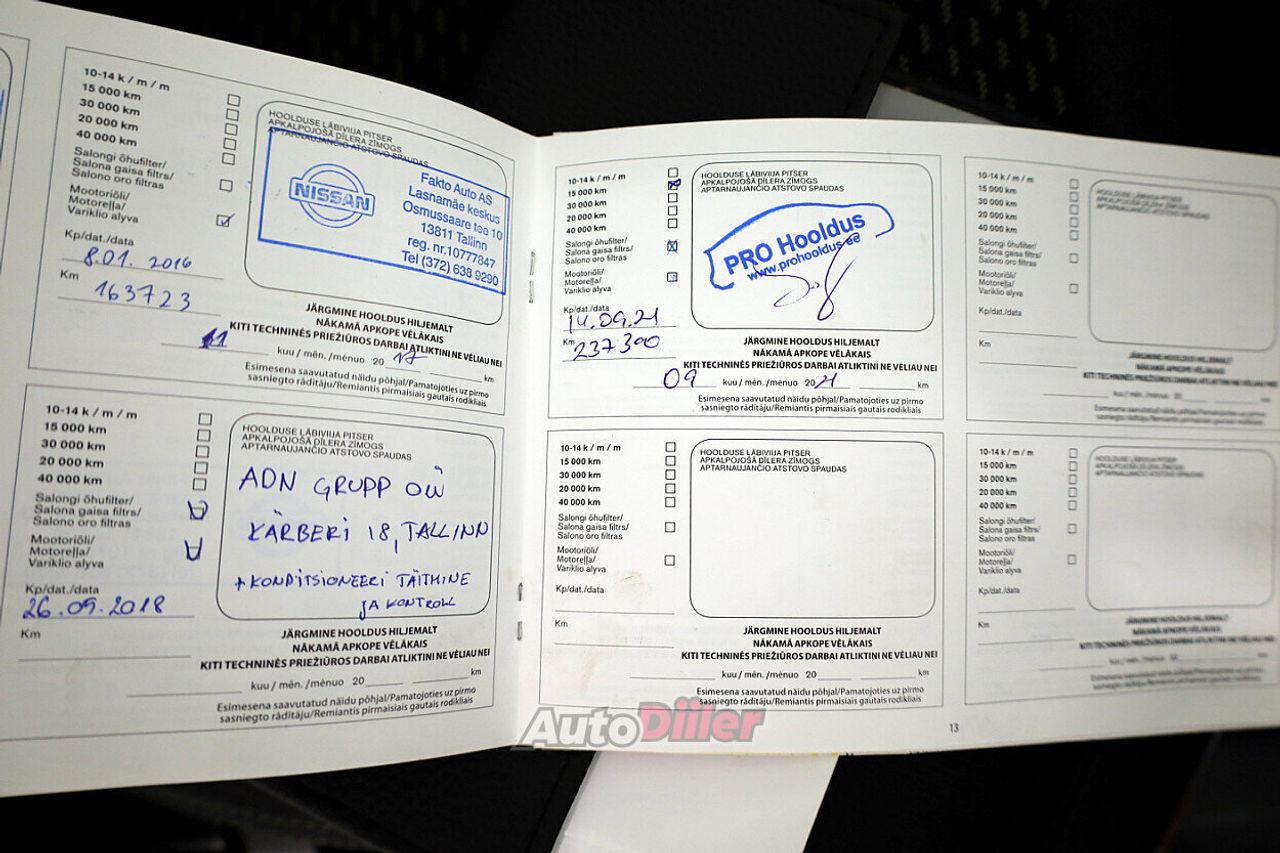 10-14 k / m / m
15 000 km
30 000 km
20 000 km
40 000 km
Salongi õhufilter/
Salona gaisa filtrs/
Salono oro filtras
Mootoriõli/
Motoreļļa/
Variklio alyva
Kp/dat./data
8.01. 2016
Km
163723
HOOLDUSE LÄBIVIIJA PITSER
APKALPOJOŠĀ DĪLERA ZĪMOGS
APTARNAUJANČIO ATSTOVO SPAUDAS
NISSAN
Fakto Auto AS
Lasnamäe keskus
Osmussaare tee 10
13811 Tallinn
reg. nr.10777847
Tel (372) 638 9290
JÄRGMINE HOOLDUS HILJEMALT
NĀKAMĀ APKOPE VĒLĀKAIS
KITI TECHNINĖS PRIEŽIŪROS DARBAI ATLIKTINI NE VĖLIAU NEI
11 kuu / mēn. /mėnuo 20 17 km
Esimesena saavutatud näidu põhjal/Pamatojoties uz pirmo
sasniegto rādītāju/Remiantis pirmaisiais gautais rodikliais
10-14 k / m / m
15 000 km
30 000 km
20 000 km
40 000 km
Salongi õhufilter/
Salona gaisa filtrs/
Salono oro filtras
Mootoriõli/
Motoreļļa/
Variklio alyva
Kp/dat./data
26.09.2018
Km
HOOLDUSE LÄBIVIIJA PITSER
APKALPOJOŠĀ DĪLERA ZĪMOGS
APTARNAUJANČIO ATSTOVO SPAUDAS
ADN GRUPP OÜ
KÄRBERI 18, TALLINN
+ KONDITSIONEERI TÄITMINE
JA KONTROLL
JÄRGMINE HOOLDUS HILJEMALT
NĀKAMĀ APKOPE VĒLĀKAIS
KITI TECHNINĖS PRIEŽIŪROS DARBAI ATLIKTINI NE VĖLIAU NEI
kuu / mēn. /mėnuo 20 km
Esimesena saavutatud näidu põhjal/Pamatojoties uz pirmo
sasniegto rādītāju/Remiantis pirmaisiais gautais rodikliais
10-14 k / m / m
15 000 km
30 000 km
20 000 km
40 000 km
Salongi õhufilter/
Salona gaisa filtrs/
Salono oro filtras
Mootoriõli/
Motoreļļa/
Variklio alyva
Kp/dat./data
14.09.21
Km
237300
HOOLDUSE LÄBIVIIJA PITSER
APKALPOJOŠĀ DĪLERA ZĪMOGS
APTARNAUJANČIO ATSTOVO SPAUDAS
PRO Hooldus
www.prohooldus.ee
JÄRGMINE HOOLDUS HILJEMALT
NĀKAMĀ APKOPE VĒLĀKAIS
KITI TECHNINĖS PRIEŽIŪROS DARBAI ATLIKTINI NE VĖLIAU NEI
09 kuu / mēn. /mėnuo 20 21 km
Esimesena saavutatud näidu põhjal/Pamatojoties uz pirmo
sasniegto rādītāju/Remiantis pirmaisiais gautais rodikliais
10-14 k / m / m
15 000 km
30 000 km
20 000 km
40 000 km
Salongi õhufilter/
Salona gaisa filtrs/
Salono oro filtras
Mootoriõli/
Motoreļļa/
Variklio alyva
Kp/dat./data
Km
HOOLDUSE LÄBIVIIJA PITSER
APKALPOJOŠĀ DĪLERA ZĪMOGS
APTARNAUJANČIO ATSTOVO SPAUDAS
JÄRGMINE HOOLDUS HILJEMALT
NĀKAMĀ APKOPE VĒLĀKAIS
KITI TECHNINĖS PRIEŽIŪROS DARBAI ATLIKTINI NE VĖLIAU NEI
kuu / mēn. /mėnuo 20 km
Esimesena saavutatud näidu põhjal/Pamatojoties uz pirmo
sasniegto rādītāju/Remiantis pirmaisiais gautais rodikliais
10-14 k / m / m
15 000 km
30 000 km
20 000 km
40 000 km
Salongi õhufilter/
Salona gaisa filtrs/
Salono oro filtras
Mootoriõli/
Motoreļļa/
Variklio alyva
Kp/dat./data
Km
HOOLDUSE LÄBIVIIJA PITSER
APKALPOJOŠĀ DĪLERA ZĪMOGS
APTARNAUJANČIO ATSTOVO SPAUDAS
JÄRGMINE HOOLDUS HILJEMALT
NĀKAMĀ APKOPE VĒLĀKAIS
KITI TECHNINĖS PRIEŽIŪROS DARBAI ATLIKTINI NE VĖLIAU NEI
kuu / mēn. /mėnuo 20
10-14 k / m / m
15 000 km
30 000 km
20 000 km
40 000 km
Salongi õhufilter/
Salona gaisa filtrs/
Salono oro filtras
Mootoriõli/
Motoreļļa/
Variklio alyva
Kp/dat./data
Km
HOOLDUSE LÄBIVIIJA PITSER
APKALPOJOŠĀ DĪLERA ZĪMOGS
APTARNAUJANČIO ATSTOVO SPAUDAS
JÄRGMINE HOOLDUS HILJEMALT
NĀKAMĀ APKOPE VĒLĀKAIS
KITI TECHNINĖS PRIEŽIŪROS DARBAI ATLIKTINI NE VĖLIAU NEI
kuu / mēn. /mėnuo 20
13
AutoDiiler